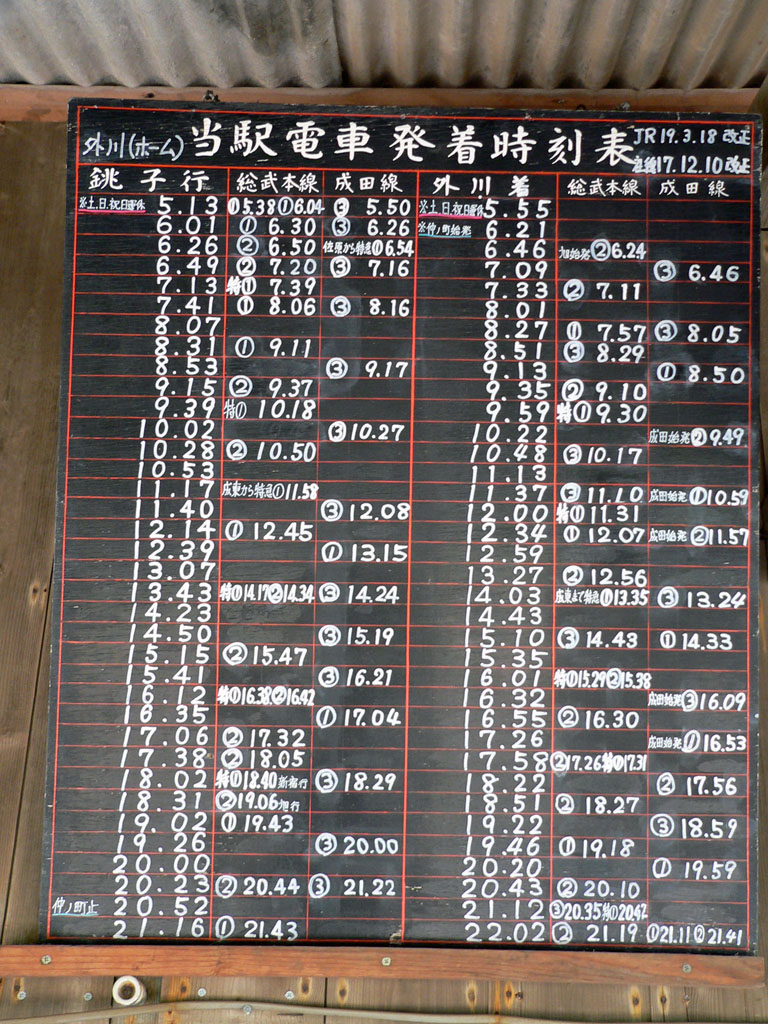 外川(ホーム) 当駅電車発着時刻表 JR19.3.18改正
17.12.10改正
銚子行 総武本線 成田線 外川着 総武本線 成田線
※土、日、祝日運休 5.13 ①5.38 ①6.04 ③ 5.50 ※土、日、祝日運休 5.55
6.01 ① 6.30 ③ 6.26 ※仲ノ町始発 6.21
6.26 ② 6.50 佐原から特急①6.54 6.46 旭始発 ②6.24
6.49 ② 7.20 ③ 7.16 7.09 ③ 6.46
7.13 特① 7.39 7.33 ② 7.11
7.41 ① 8.06 ③ 8.16 8.01
8.07 8.27 ① 7.57 ③ 8.05
8.31 ① 9.11 8.51 ③ 8.29
8.53 ③ 9.17 9.13 ① 8.50
9.15 ② 9.37 9.35 ② 9.10
9.39 特① 10.18 9.59 特①9.30
10.02 ③10.27 10.22 成田始発②9.49
10.28 ② 10.50 10.48 ③10.17
10.53 11.13
11.17 成東から特急①11.58 11.37 ③11.10 成田始発①10.59
11.40 ③12.08 12.00 特①11.31
12.14 ①12.45 12.34 ①12.07 成田始発②11.57
12.39 ①13.15 12.59
13.07 13.27 ②12.56
13.43 特①14.17②14.34 ③14.24 14.03 成東まで特急①13.35 ③13.24
14.23 14.43
14.50 ③15.19 15.10 ③14.43 ①14.33
15.15 ②15.47 15.35
15.41 ③16.21 16.01 特①15.29②15.38
16.12 特①16.38②16.42 16.32 成田始発③16.09
16.35 ①17.04 16.55 ②16.30
17.06 ②17.32 17.26 成田始発①16.53
17.38 ②18.05 17.58 ②17.26特①17.31
18.02 特①18.40 ③18.29 18.22 ②17.56
18.31 ②19.06旭行 18.51 ②18.27
19.02 ①19.43 19.22 ③18.59
19.26 ③20.00 19.46 ①19.18
20.00 20.20 ①19.59
20.23 ②20.44 ③21.22 20.43 ②20.10
仲ノ町止 20.52 21.12 ③20.35特①20.47
21.16 ①21.43 22.02 ②21.19 ①21.11②21.41